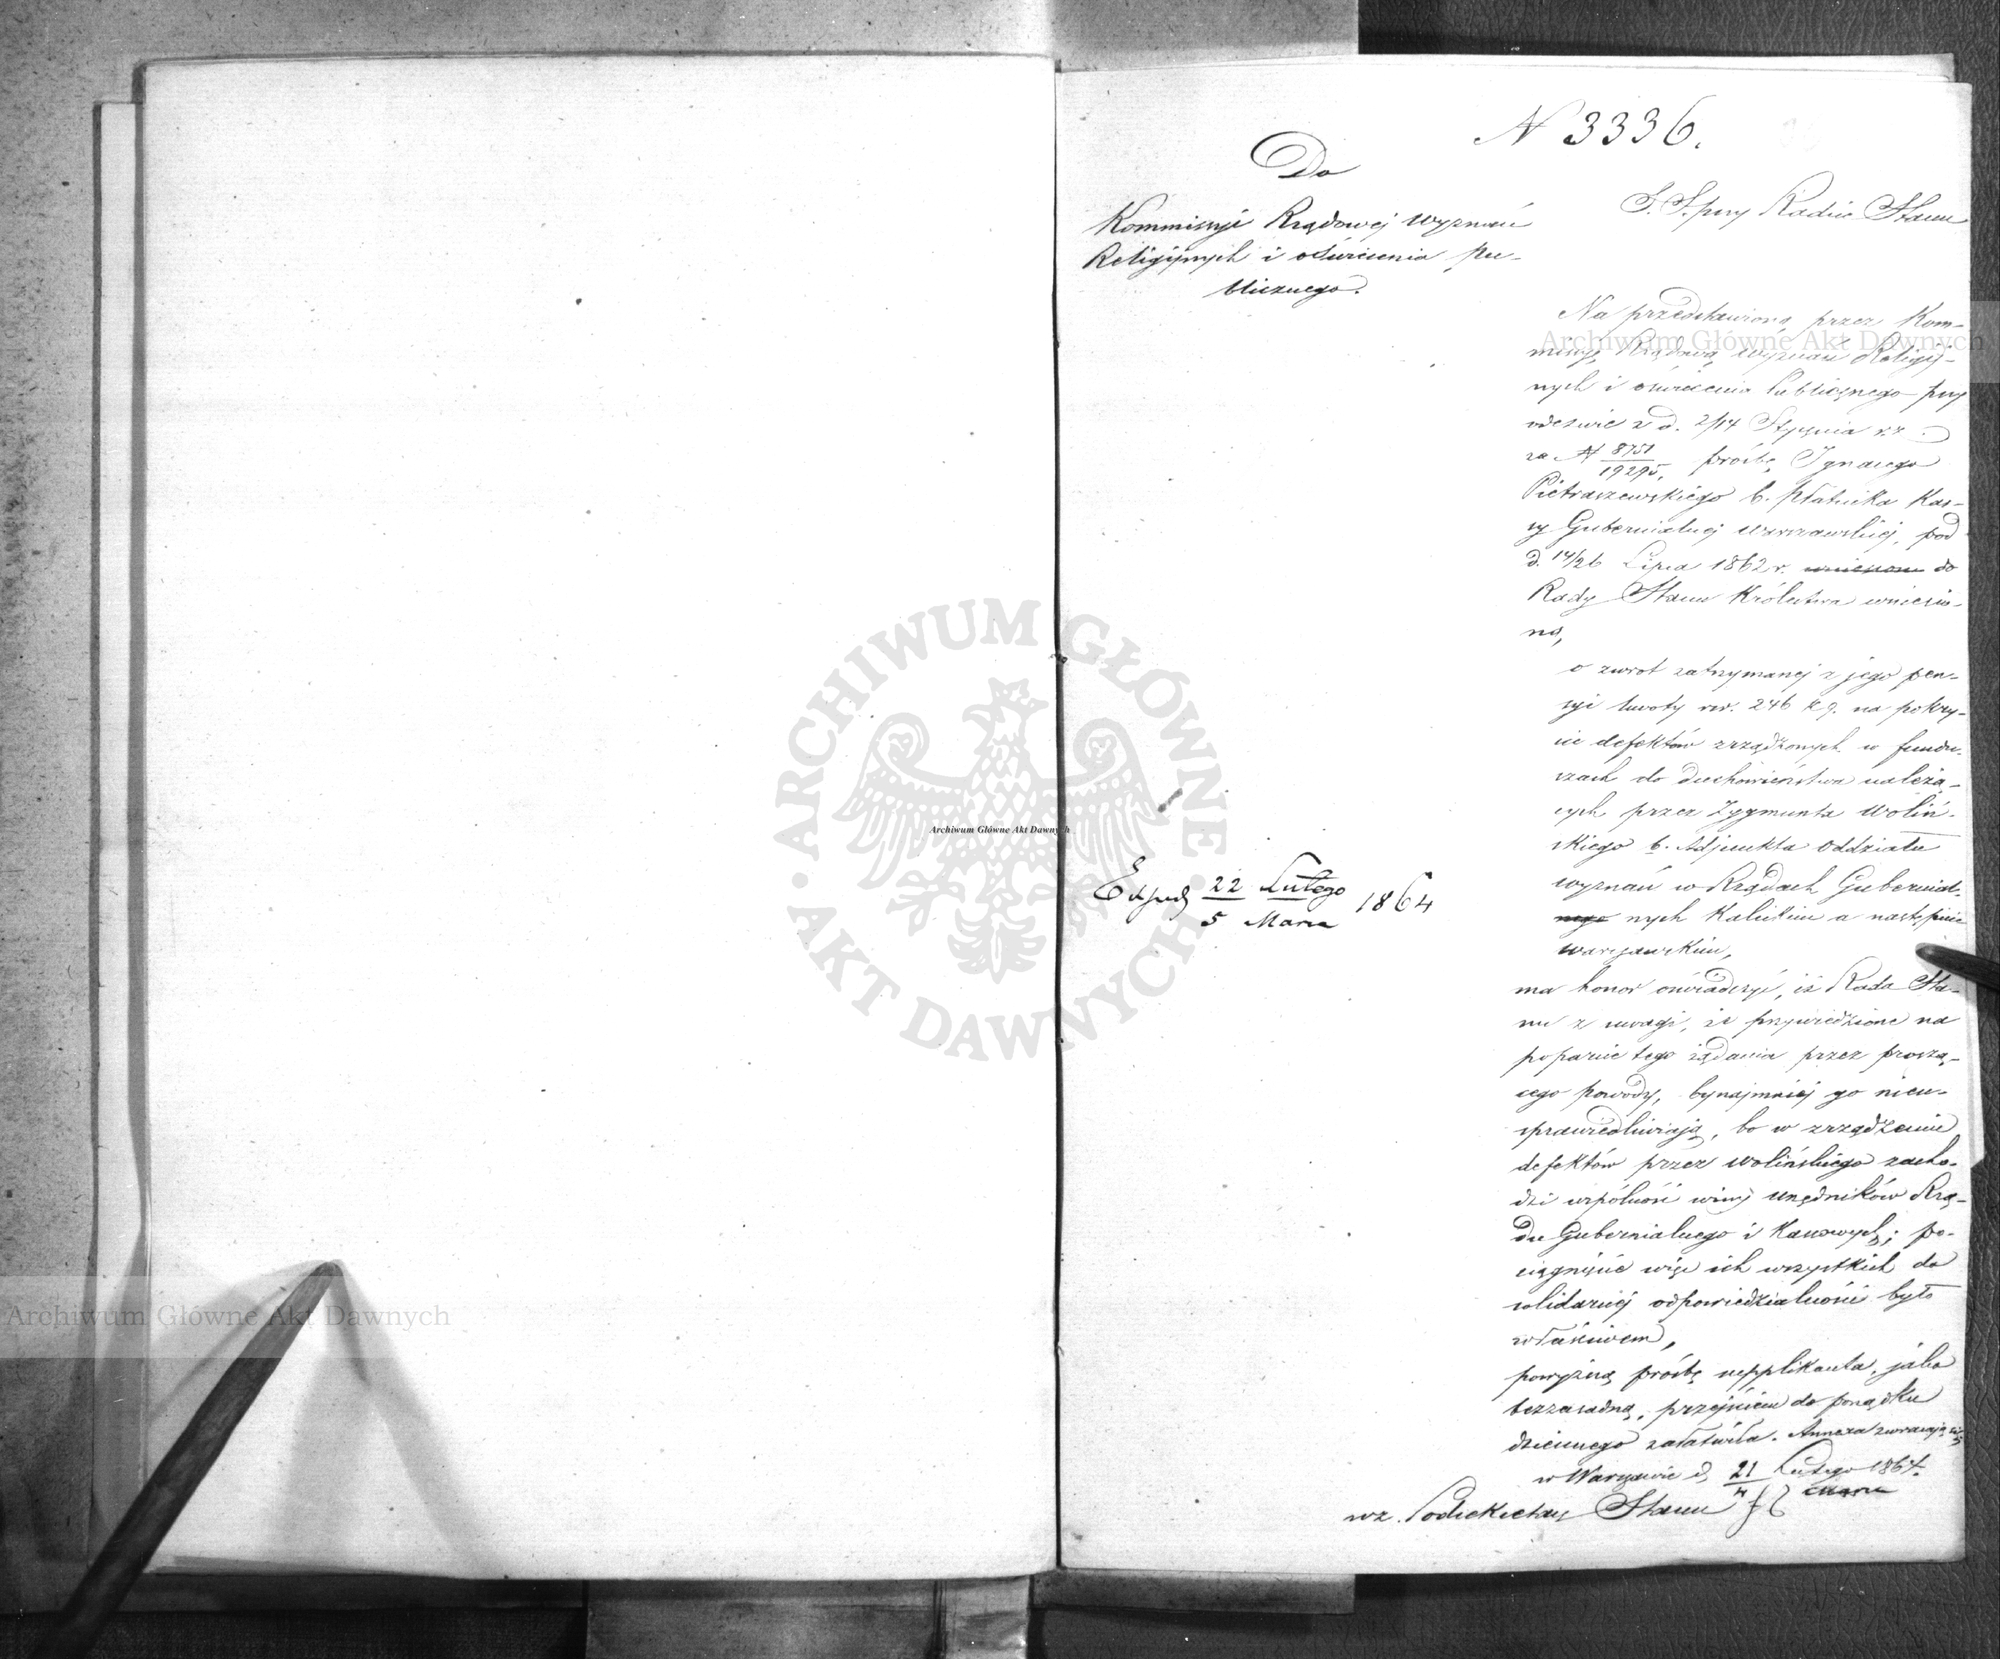 N 3336.
Do
Kommissyi Rządowej Wyznań
Religijnych i oświecenia pu-
blicznego.
S. S. przy Radzie Stanu
Na przedstawioną przez Kom-
missyę Rządową wyznań Religij-
nych i oświecenia publicznego przy
odezwie z d. 2/14 Stycznia r.z.
za N 8751/19295, prośbę Ignacego
Pietraszewskiego b. płatnika Kas-
sy Gubernialnej warszawskiej, pod
d. 14/26 Lipca 1862 r. wniesioną do
Rady Stanu Królestwa wniesio-
ną,
o zwrot zatrzymanej z jego pen-
syi kwoty rsr. 246 k 9. na pokry-
cie defektów zrządzonych w fundu-
szach do duchowieństwa należą-
cych przez Zygmunta Woliń-
skiego b. Adjunkta Oddziału
wyznań w Rządach Gubernial-
nego nych Kaliskim a następnie
warszawskim,
ma honor oświadczyć, iż Rada Sta-
nu z uwagi, że przywiedzione na
poparcie tego żądania przez proszą-
cego powody, bynajmniej go nieu-
sprawiedliwiają, bo w zrządzeniu
defektów przez Wolińskiego zacho-
dzi wspólność winy urzędników Rzą-
du Gubernialnego i Kassowych; po-
ciągnięcie więc ich wszystkich do
solidarnej odpowiedzialności było
właściwem,
powyższą prośbę supplikanta, jako
bezzasadną, przejściem do porządku
dziennego załatwiła. Annexa zwracają się
w Warszawie d. 21/4 Lutego 1864. Marca
wz. Podsekretarz Stanu
Exped 22 Lutego/5 Marca 1864
Archiwum Główne Akt Dawnych
Archiwum Główne Akt Dawnych
Archiwum Główne Akt Dawnych
ARCHIWUM GŁÓWNE • AKT DAWNYCH •